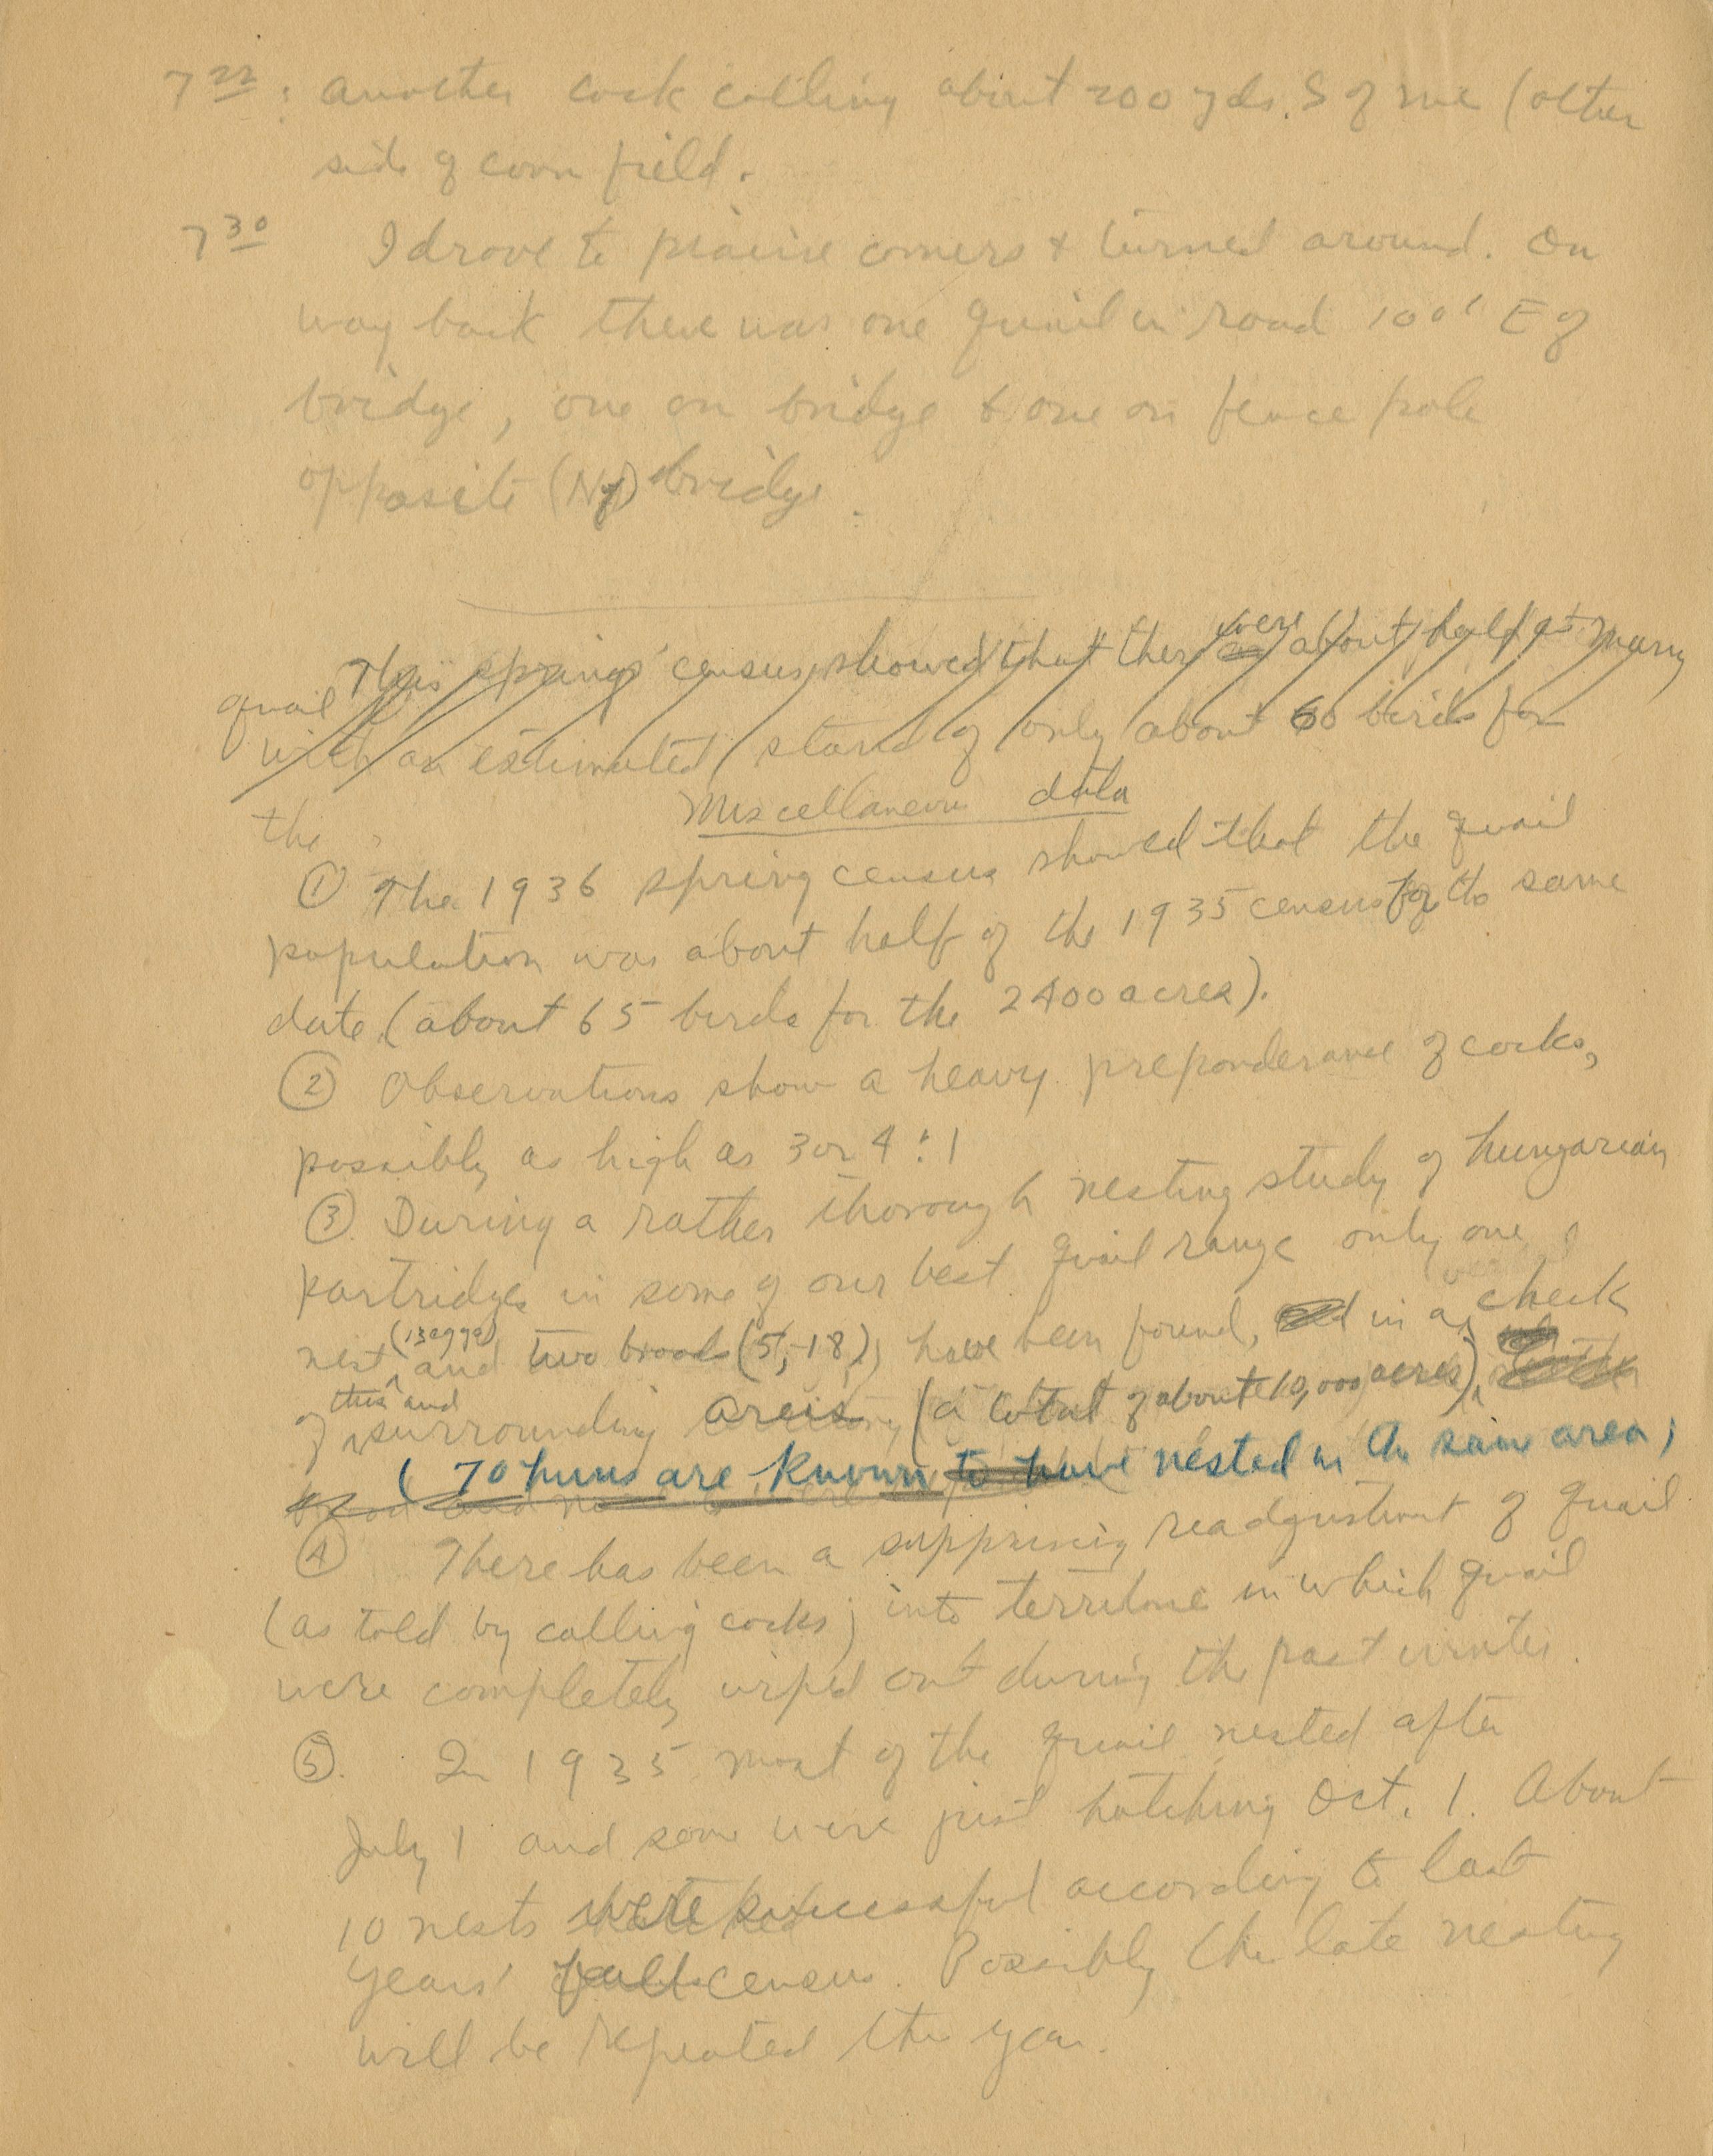 7 22 : Another cock calling about 200 yds. S of me (other
side of corn field.
7 30 I drove to prairie corners & turned around. On
way back there was one quail in road 100' E of
bridge, one on bridge & one on fence pole
opposite (N of) bridge.
This springs' census showed that there were about half as many
quail
with an estimated stand of only about 60 birds for
the
Miscellaneous data
① The 1936 spring census showed that the quail
population was about half of the 1935 census for the same
date (about 65 birds for the 2400 acres).
② Observations show a heavy preponderance of cocks,
possibly as high as 3 or 4 : 1
③. During a rather thorough nesting study of hungarian
partridges in some of our best quail range only one
nest (13 eggs) and two broods (5, -18,) have been found, in a check
of this and surrounding areas (a total of about 10,000 acres),
(70 huns are known to have nested in the same area;
④ There has been a supprising readjustment of quail
(as told by calling cocks) into territorie in which quail
were completely wiped out during the past winter.
⑤. In 1935 most of the quail nested after
July 1 and some were just hatching Oct. 1. About
10 nests were successful according to last
years' fall census. Possibly the late nesting
will be repeated this year.